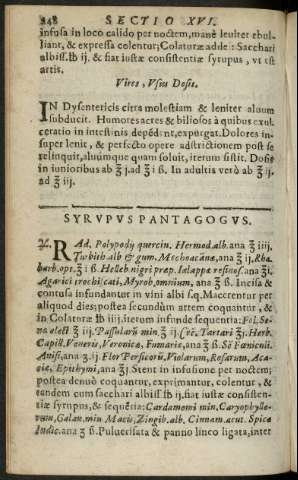 248 SECTIO XVI.
infusa in loco calido per noctem, mane leuiter ebul-
liant, & expressa colentur; Colaturæ adde: Sacchari
albiss. ℔ ij. & fiat iustæ consistentiæ syrupus, vt est
artis.
Vires, Vsus Dosis.
IN Dysentericis citra molestiam & leniter aluum
subducit. Humores acres & biliosos à quibus exul-
ceratio in intestinis depēdēt, expurgat. Dolores in-
super lenit, & perfecto opere adstrictionem post se
relinquit, aluúmque quam soluit, iterum sistit. Dosis
in iunioribus ab ℥ j. ad ℥ i ß. In adultis verò ab ℥ ij.
ad ℥ iij.
SYRVPVS PANTAGOGVS.
℞. RAd. Polypody quercin. Hermod. alb. ana ℥ iiij.
Turbith alb & gum. Mechoacānæ, ana ℥ ij. Rha.
barb. opt. ℥ i ß. Helleb nigri præp. Ialappæ resinos. ana ℥ i.
Agarici trochiscati, Myrob. omnium, ana ℥ ß. Incisa &
contusa infundantur in vini albi s.q. Macerentur per
aliquod dies; postea secundùm artem coquantur, &
in Colaturæ ℔ iiij. iterum infunde sequentia: Fol. Se-
na elect ℥ iij. Passularū min. ℥ ij. Cre. Tartari ℥ j. Herb.
Capill. Veneris, Veronicæ, Fumariæ, ana ℥ ß. Se Fœniculi.
Anisi, ana ℥ ij. Flor Persicorū, Violarum, Rosarum, Aca-
ciæ, Epithymi, ana ℥ j. Stent in infusione per noctem;
postea denuò coquantur, exprimantur, colentur, &
tandem cum sacchari albiss. ℔ ij. fiat iustæ consisten-
tiæ syrupus, & sequētia: Cardamomi min. Caryophylle-
rum, Galan. min Macis, Zingib. alb. Cinnam. acut. Spicæ
Indic. ana ʒ ß. Puluerisata & panno lineo ligata, inter